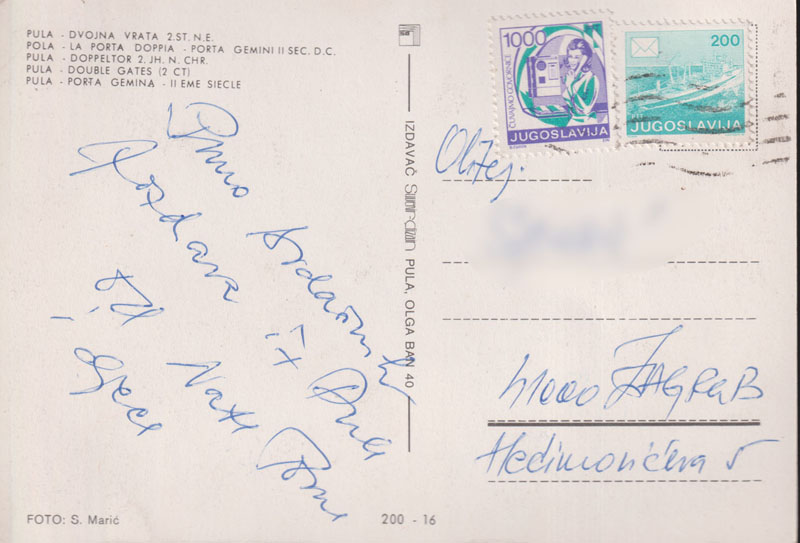 PULA - DVOJNA VRATA 2.ST. N.E.
POLA - LA PORTA DOPPIA - PORTA GEMINI II SEC. D.C.
PULA - DOPPELTOR 2. JH. N. CHR.
PULA - DOUBLE GATES (2 CT)
PULA - PORTA GEMINA - II EME SIECLE
Puno srdačnih
pozdrava iz Pule
od Nate
i djece
IZDAVAČ PULA, OLGA BAN 40
1000
ČUVAJMO GOVORNICE
JUGOSLAVIJA
200
JUGOSLAVIJA
Obitelj
41000 ZAGREB
FOTO: S. Marić
200 - 16